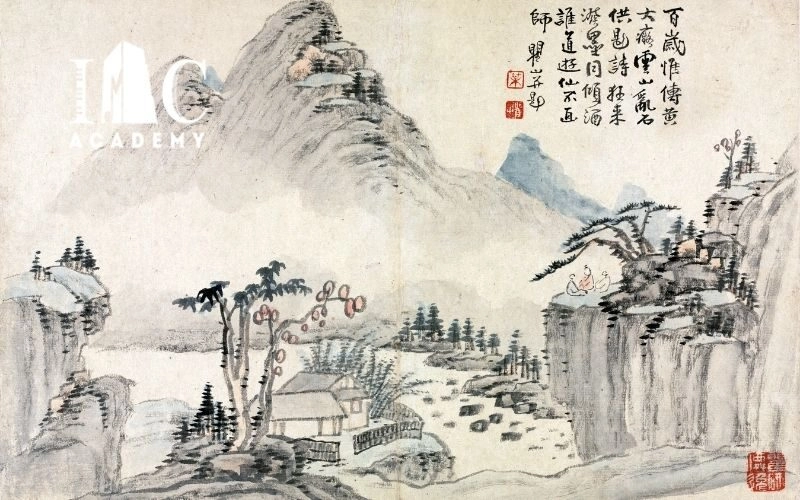 IMC
ACADEMY
百歲惟傳黃
大癡雲山亂石
供題詩狂來
潑墨同傾酒
誰道遊仙不
師 瞿山并題